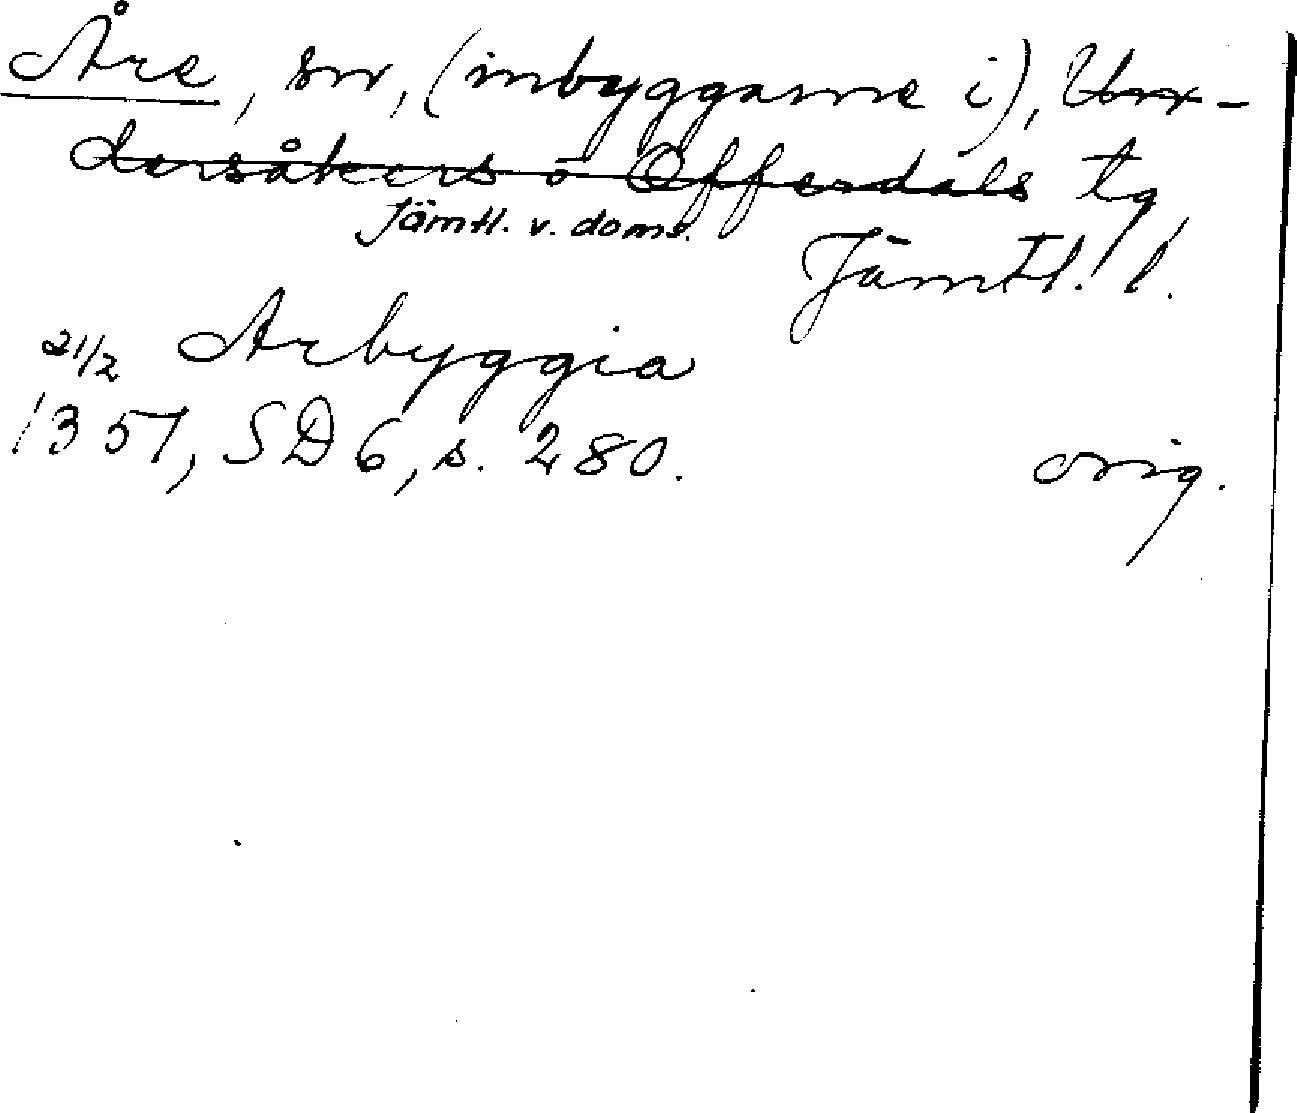 Åre, sn, (inbyggarne i), Un-
dersåkers o Offerdals tg,
Jämtl. v. doms.
Jämtl. l.
21/2 Arbyggia
1357, SD 6, s. 280. orig.